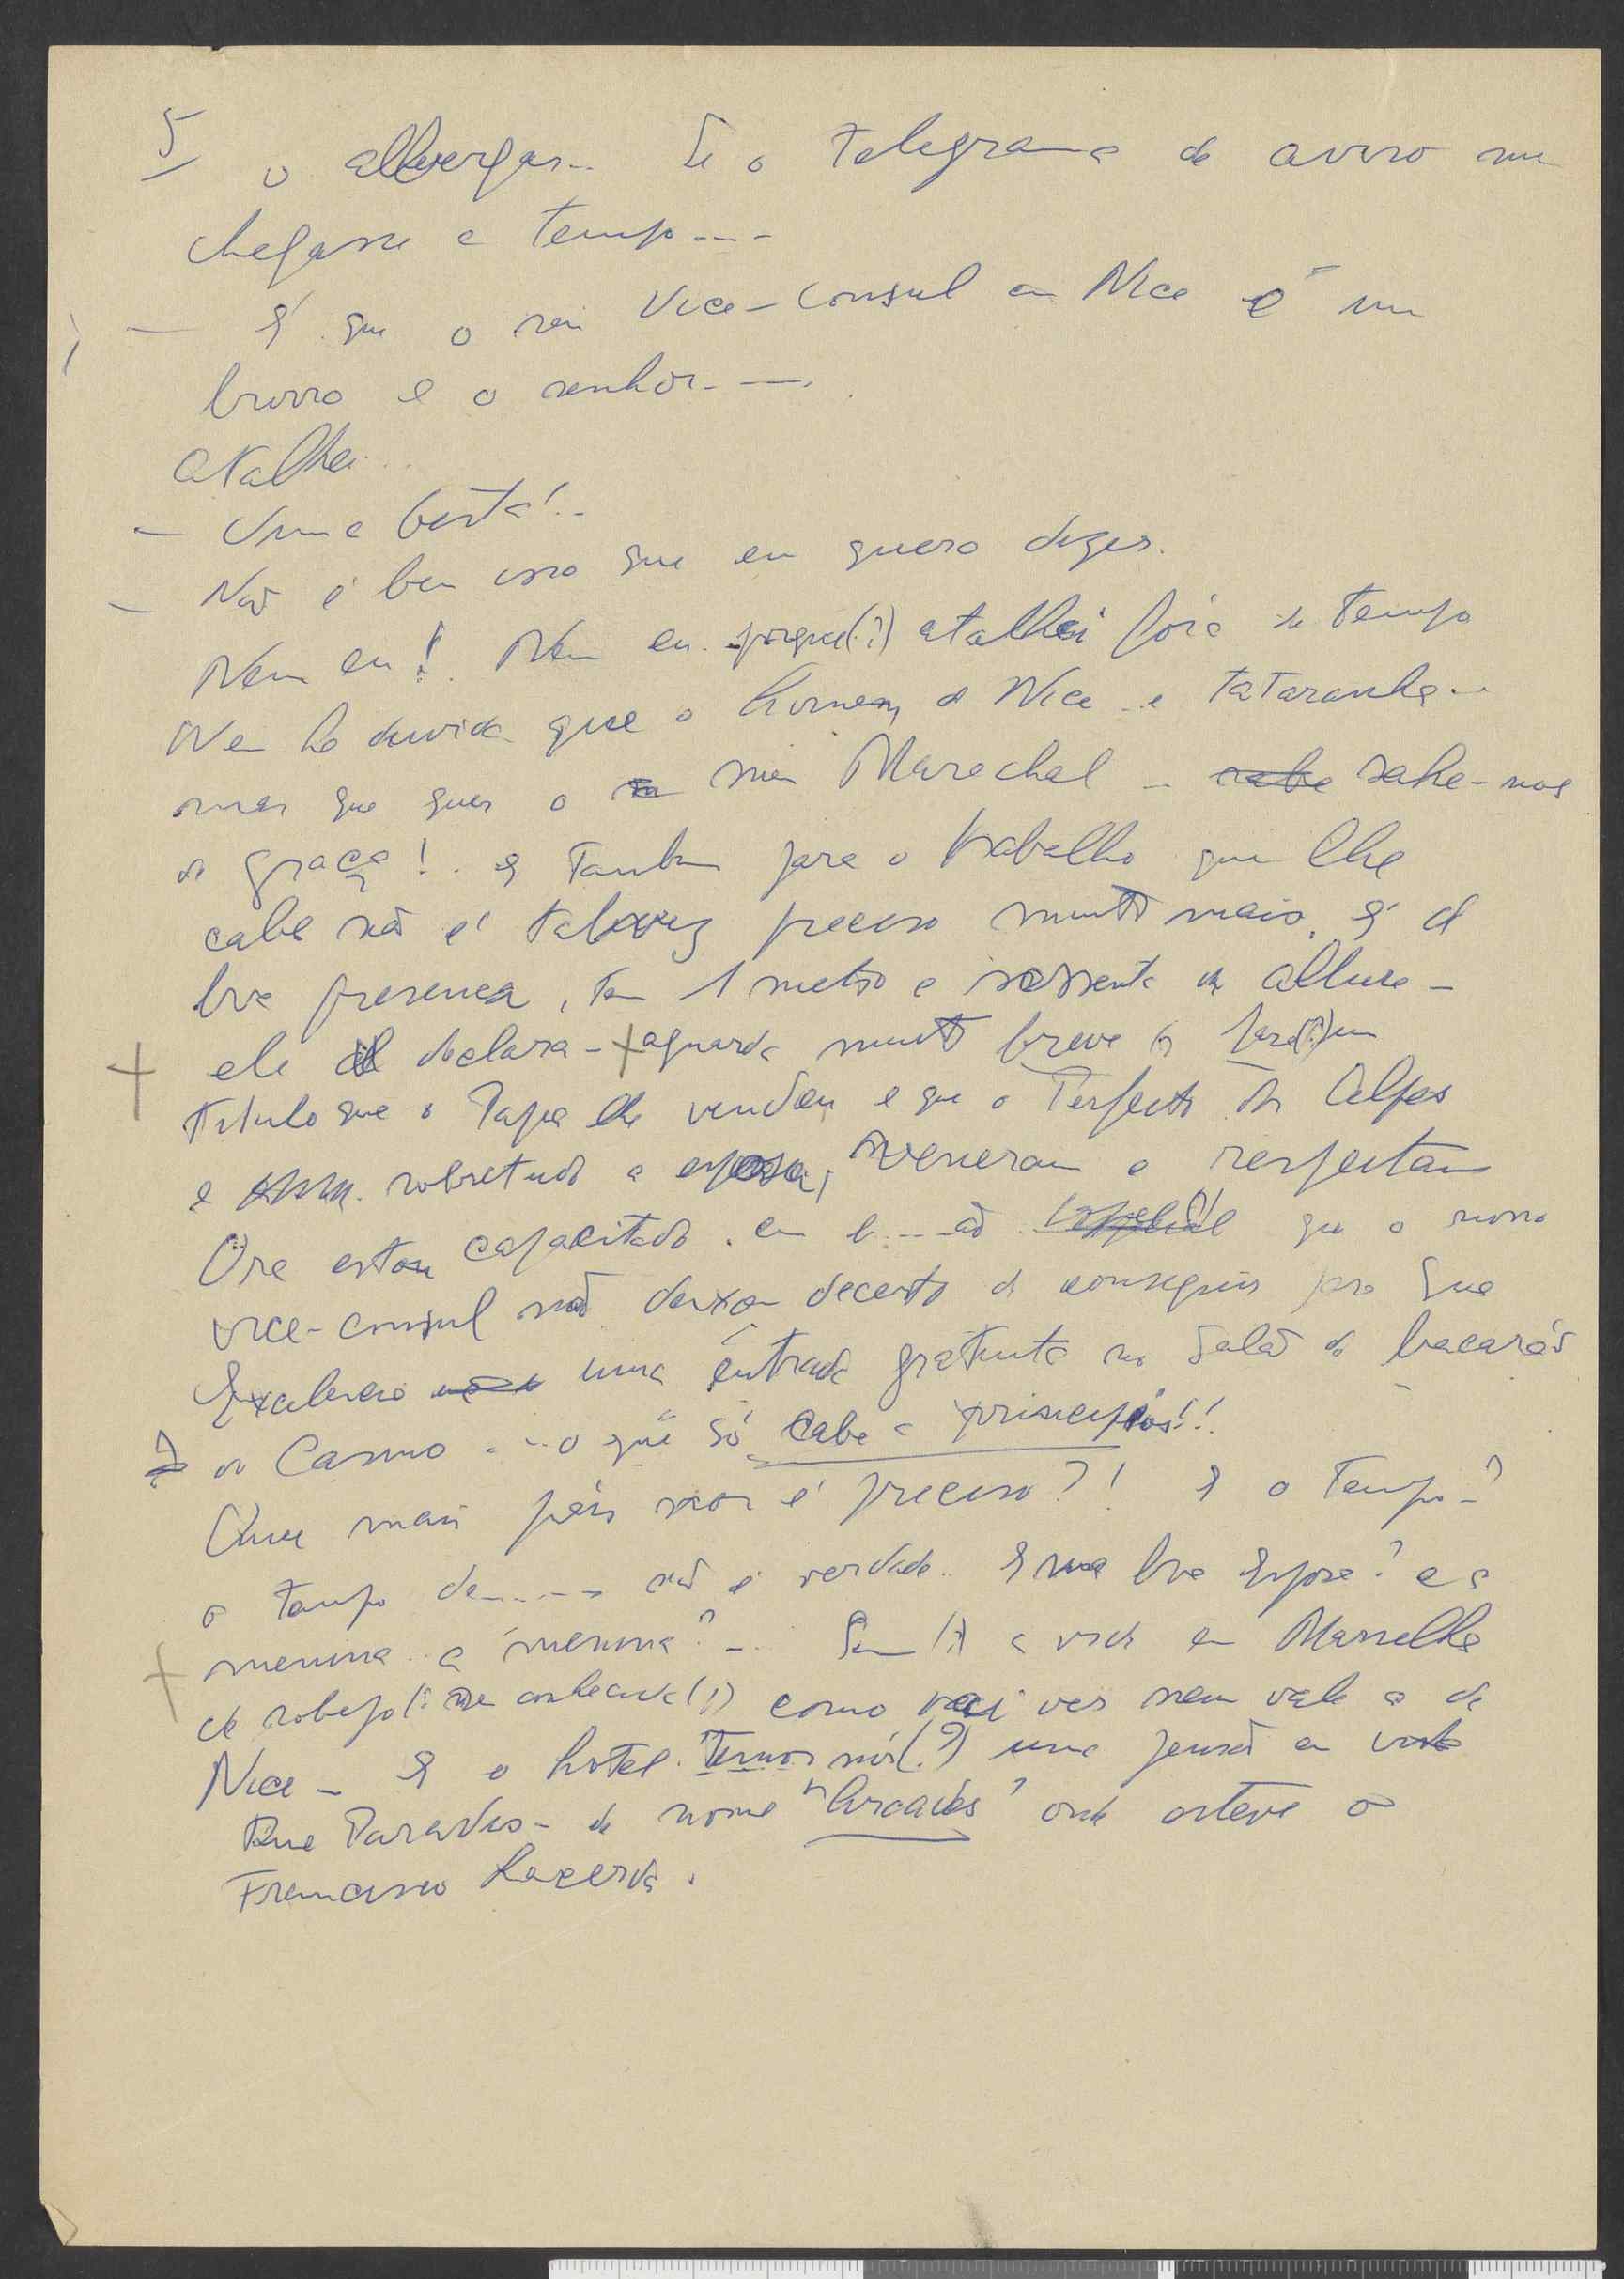 5
o albergar... Se o telegrama de aviso me
chegasse a tempo....
— É que o seu Vice-Consul em Nice é um
burro e o senhor....
atalhei...
— Uma besta!..
— Não é bem isso que eu quero dizer.
Nem eu!. Nem eu. porque(?) atalhei fóra de tempo
Nem ha duvida que o homem de Nice é tataranha...
mas que quer o meu Marechal — sabe sahe-nos
de graça!. E tambem para o trabalho que lhe
cabe não é talvez preciso muito mais. É de
boa presença, tem 1 metro e sessenta de altura —
ele declara — aguarda muito breve
titulo que o Papa lhe vendeu e que o Perfecto dos Alpes
e sobretudo a esposa, veneram e respeitam
Ora estou capacitado. em que o nosso
vice-consul não deixou decerto de conseguir pra Sua
Exalencia uma entrada gratuita no Salão de bacarás
do Casino ...o que só cabe a principios!!
Que mais pois nos é preciso?! E o tempo?
o tempo de..... não é verdade.. E sua boa Espoza? e a
menina.. a menina?... a vida em Marselha
de como vai ver nem vale a de
Nice — E o hotel. Temos nós(?) uma pensão em
Rue Paradis — de nome "Arcades" onde esteve o
Francisco Lacerda.